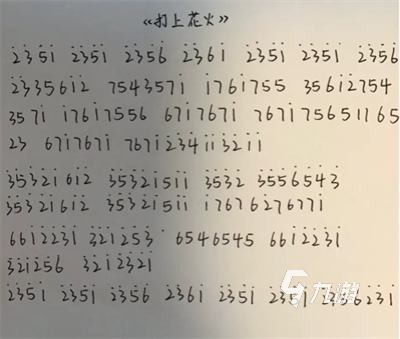 《打上花火》
2351 2351 2356 2361 2351 2351 2356
2335612 7543571 1761755 35612754
3571 17617556 6717671 76717565 11 65
23 6717671 7671234113211
35321612 35321511 3532 3556543
35321612 35321511 17676276771
6612231 321253 6546545 6612231
321256 3212321
2351 2351 2356 2361 2351 2351 2356231
九游